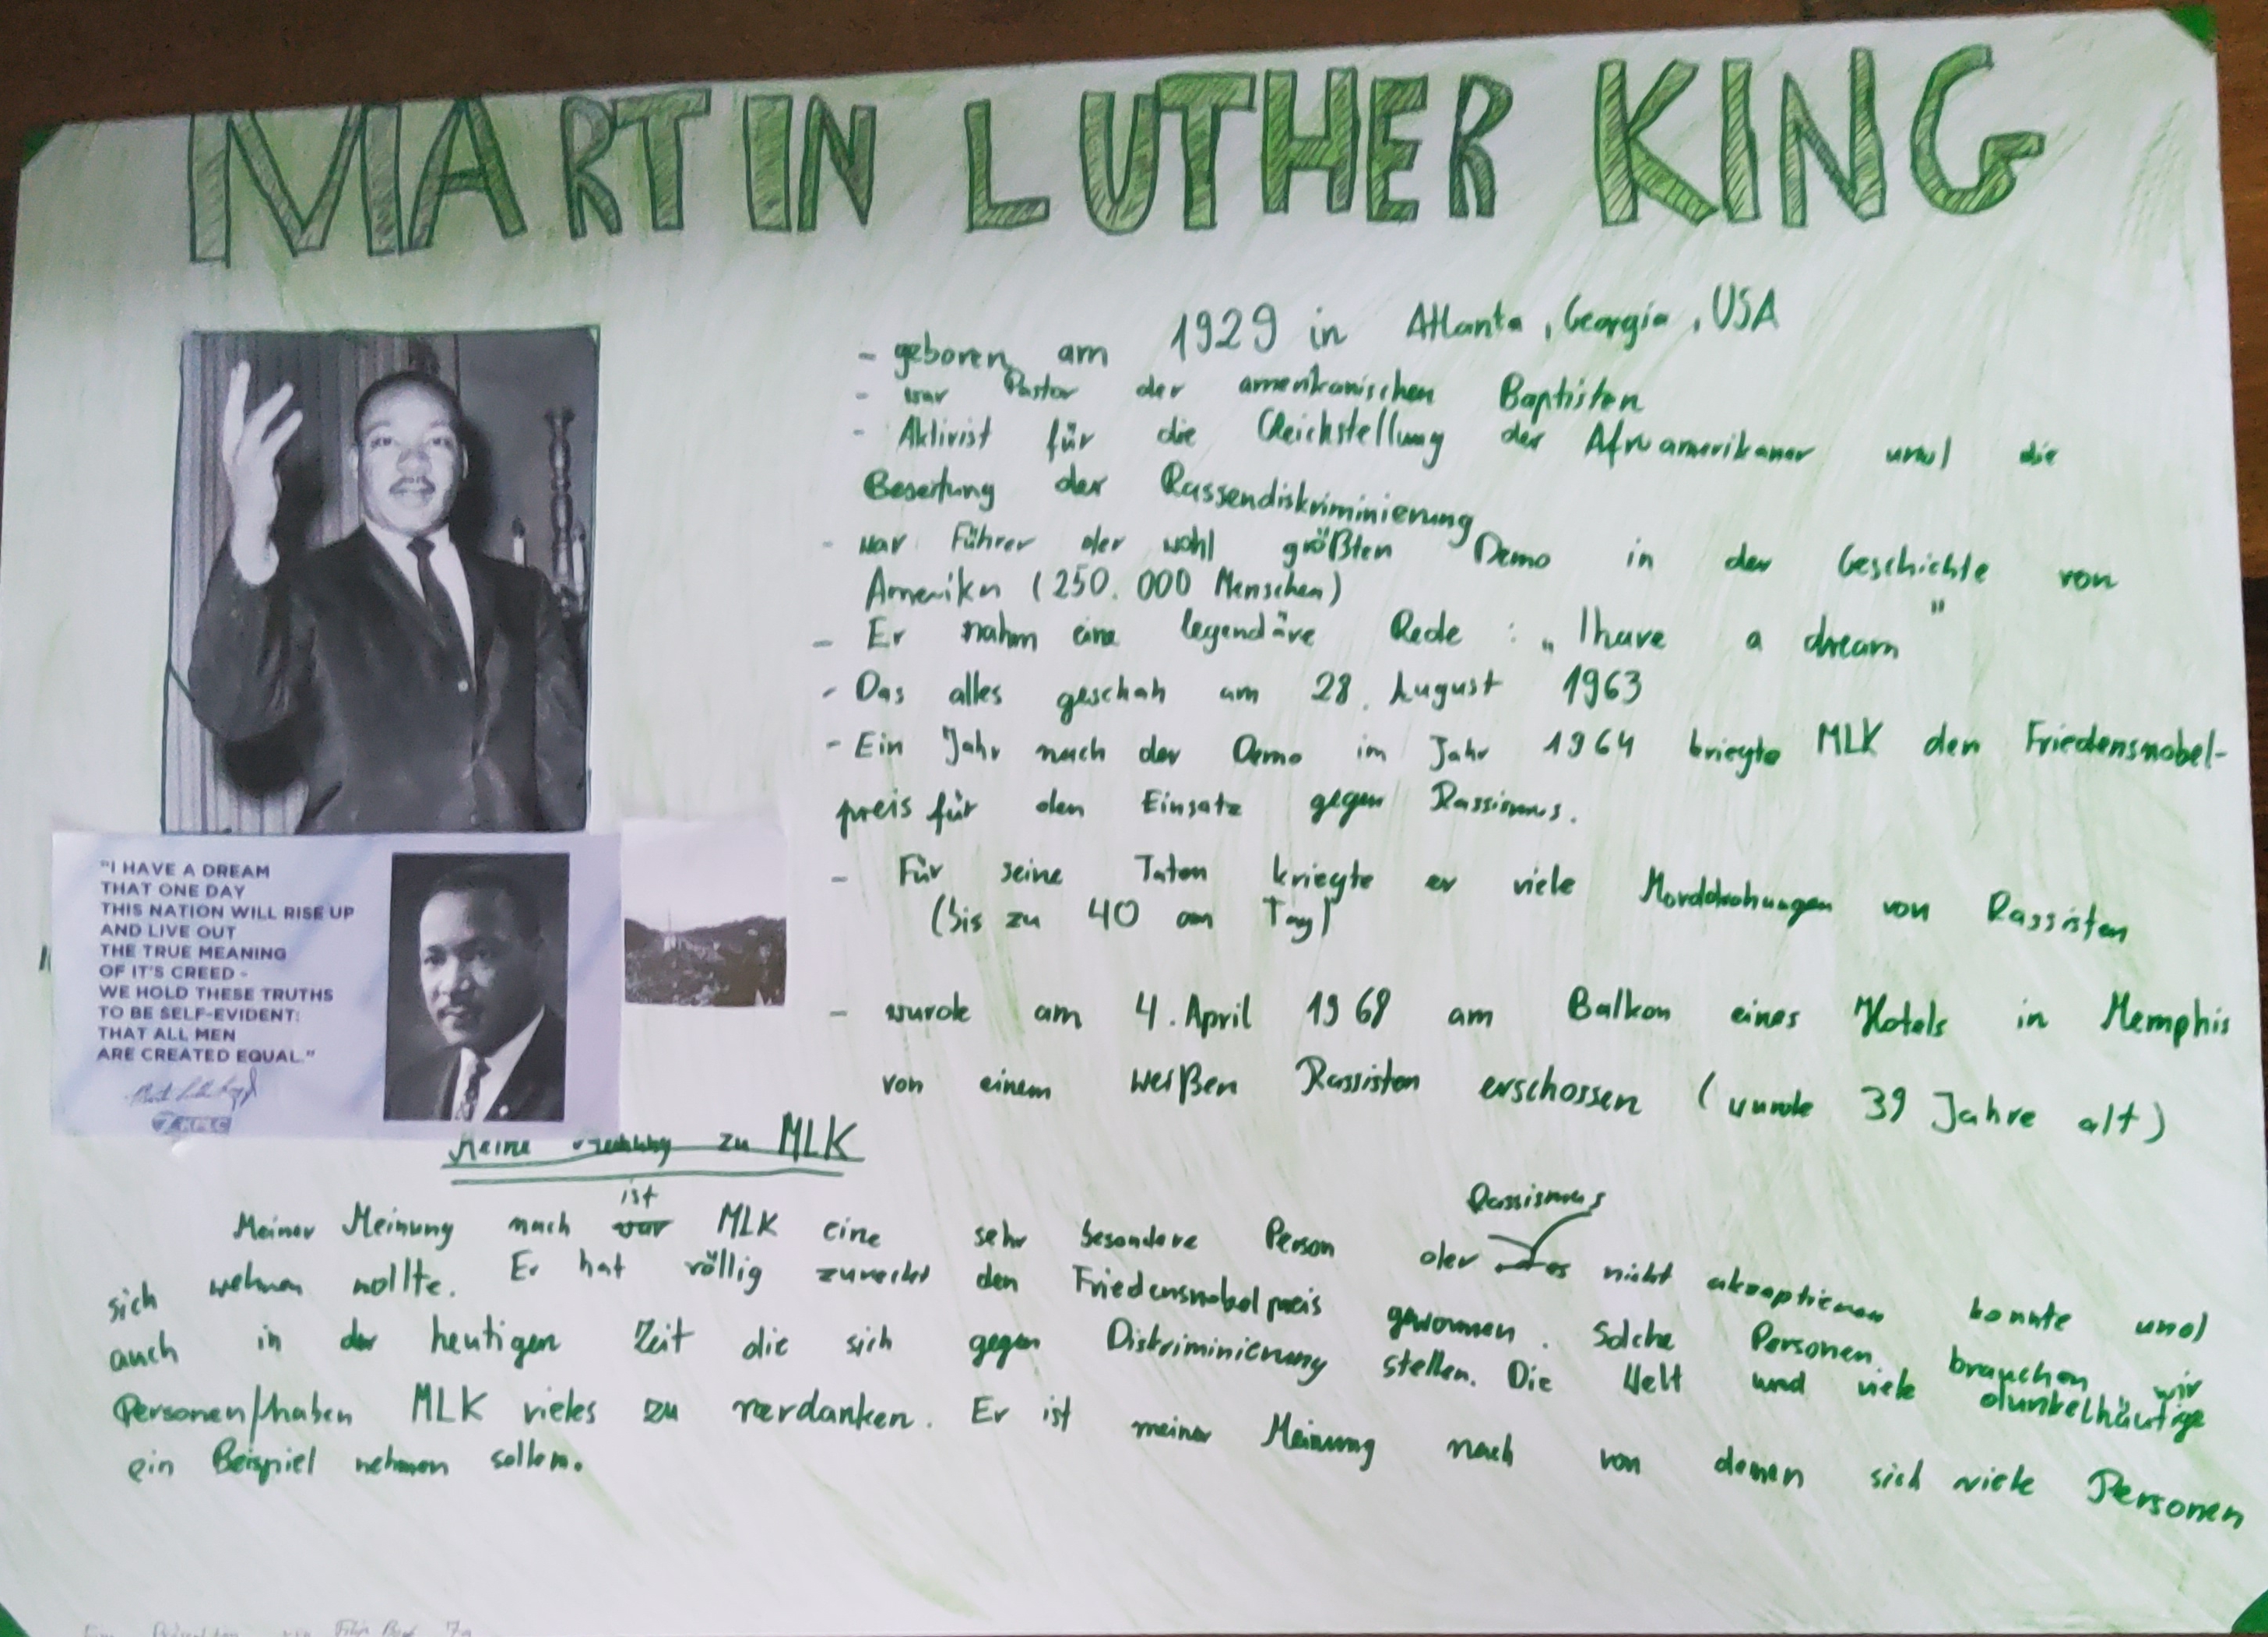 MARTIN LUTHER KING
- geboren am 1929 in Atlanta, Georgia, USA
- war Pastor der amerikanischen Baptisten
- Aktivist für die Gleichstellung der Afroamerikaner und die
Beseitung der Rassendiskriminierung
- war Führer der wohl größten Demo in der Geschichte von
Amerika (250.000 Menschen)
- Er nahm eine legendäre Rede: „I have a dream"
- Das alles geschah am 28. August 1963
- Ein Jahr nach der Demo im Jahr 1964 kriegte MLK den Friedensnobel-
preis für den Einsatz gegen Rassismus.
- Für seine Taten kriegte er viele Morddrohungen von Rassisten
(bis zu 40 am Tag)
- wurde am 4. April 1968 am Balkon eines Hotels in Memphis
von einem weißen Rassisten erschossen (wurde 39 Jahre alt)
"I HAVE A DREAM
THAT ONE DAY
THIS NATION WILL RISE UP
AND LIVE OUT
THE TRUE MEANING
OF IT'S CREED -
WE HOLD THESE TRUTHS
TO BE SELF-EVIDENT:
THAT ALL MEN
ARE CREATED EQUAL."
7 KPLC
Meine Meinung zu MLK
ist
Rassismus
Meiner Meinung nach war MLK eine sehr besondere Person der es nicht akzeptieren konnte und
sich wehren wollte. Er hat völlig zurecht den Friedensnobelpreis gewonnen. Solche Personen brauchen wir
auch in der heutigen Zeit die sich gegen Diskriminierung stellen. Die Welt und viele dunkelhäutige
Personen haben MLK vieles zu verdanken. Er ist meiner Meinung nach von denen sich viele Personen
ein Beispiel nehmen sollen.